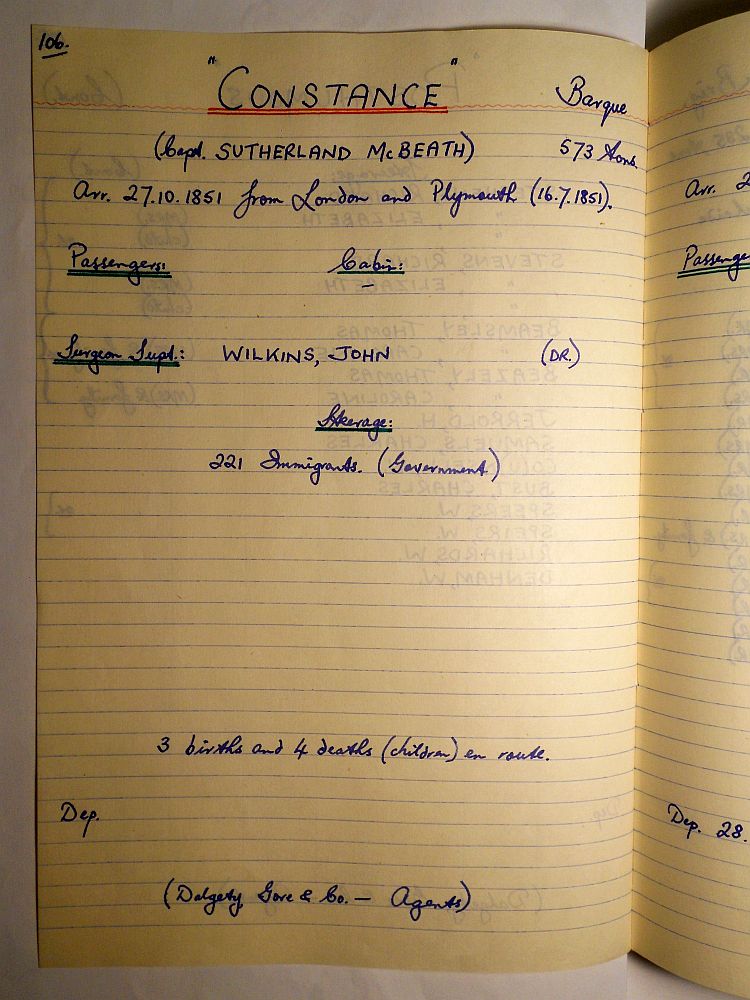 106.
"CONSTANCE" Barque
(Capt. SUTHERLAND McBEATH) 573 Tons.
Arr. 27.10.1851 from London and Plymouth (16.7.1851).
Passengers: Cabin:
–
Surgeon Supt.: WILKINS, JOHN (DR.)
Steerage:
221 Immigrants. (Government)
3 births and 4 deaths (children) en route.
Dep.
(Dalgety, Gore & Co. — Agents)
Arr. 2
Passenge
Dep. 28.